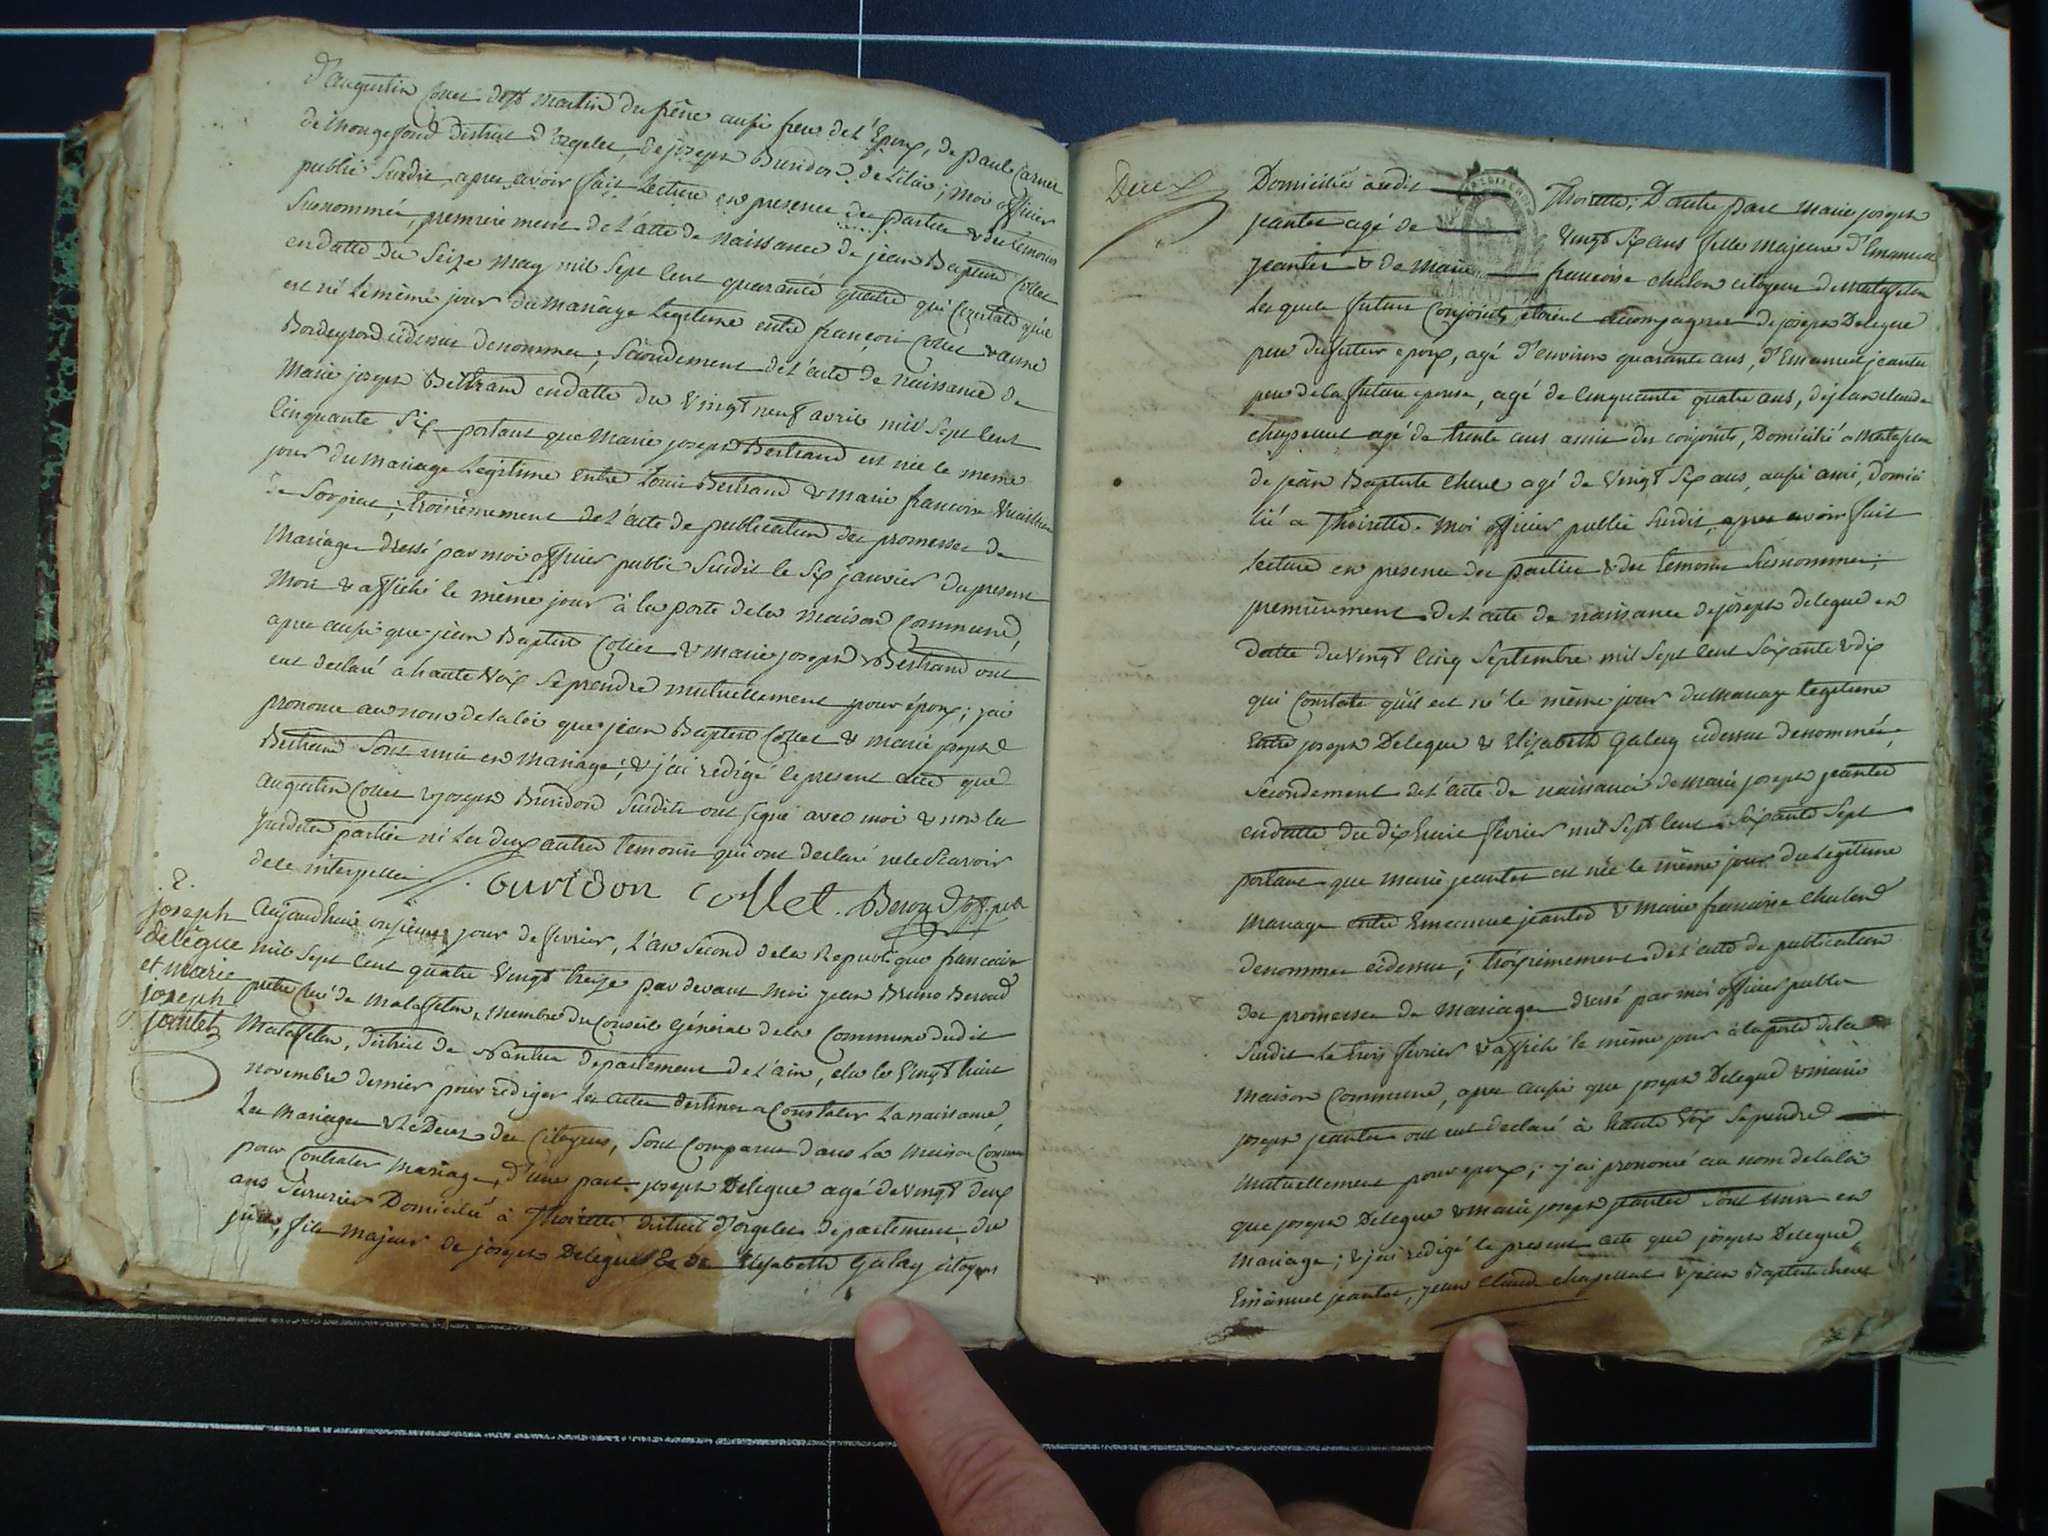 d'augustin Collet de St martin du frêne aussi frere de l'Epoux, de paul Carnet
de Mongefond district d'orgelet, de joseph Buridon de Lilia; Moi officier
public Susdit, apres avoir fait Lecture en presence des parties & des temoins
Susnommés, premierement de l'acte de Naissance de jean Baptiste Collet
en datte du Seize May mil Sept Cent quarante quatre qui Constate qu'il
est né le même jour du Mariage Legitime entre françois Collet & anne
cidessus denommés; Secondement de l'acte de Naissance de
Marie joseph Bertrand en datte du Vingt neuf avril mil Sept Cent
Cinquante Six portant que Marie joseph Bertrand est née le meme
jour du Mariage Legitime entre Louis Bertrand & Marie francoise
de ; troisiemement de l'acte de publication des promesses de
Mariage dressé par moi officier public Susdit le Six janvier du present
Mois & affiché le même jour à la porte de la Maison Commune,
apres aussi que jean Baptiste Collet & Marie joseph Bertrand ont
eut declaré a haute Voix Se prendre mutuellement pour époux; j'ai
prononcé au nom de la loi que jean Baptiste Collet & marie joseph
Bertrand Sont unis en Mariage; & j'ai redigé le present acte que
augustin Collet & joseph Buridon Susdits ont Signé avec moi & non les
Susdites parties ni Les deux autres temoins qui ont declaré ne le Scavoir
de ce interpellés. buridon Collet. Beroud off. pub
.2.
joseph
delègue
et marie
joseph
jantet
Aujourd'hui onzieme jour de fevrier, L'an Second de la Republique francaise
mil Sept Cent quatre Vingt treize par devant Moi jean Bruno Beroud
pretre Curé de Matafelon, Membre du Conseil Général de la Commune dudit
Matafelon, district de Nantua departement de l'ain, elu le Vingt huit
novembre dernier pour rediger Les actes destinés a Constater La naissance,
Les Mariages & Le Decès des Citoyens, Sont Comparus dans La Maison Commune
pour Contracter Mariage, d'une part joseph Delegue agé de Vingt deux
ans Serurier Domicilié à Thoirette district d'orgelet departement du
jura, fils majeur de joseph Delègue & de Elisabeth Galay citoyens
Deux
Domiciliés audit Thoirette; D'autre part Marie joseph
jeantet agé de Vingt Six ans fille Majeure d'Emanuel
jeantet & de Marie francoise chalon citoyens de Matafelon
Lesquels futurs Conjoints étoient accompagnés de joseph Delegue
pere du futur epoux, agé d'environ quarante ans, d'Emanuel jeantet
pere de la future epouse, agé de Cinquante quatre ans, de jean claude
chapellut agé de trente ans amis des conjoints, Domicilié a Matafelon
de jean Baptiste Cheve agé de Vingt Six ans, aussi ami, domici
lié a Thoirette. Moi officier public Susdit, apres avoir fait
Lecture en presence des parties & des temoins Susnommés;
premierement de l'acte de naissance de joseph delegue en
datte du Vingt Cinq Septembre mil Sept Cent Soixante & dix
qui Constate qu'il est né le même jour du Mariage legitime
Entre joseph Delegue & Elizabeth Galay cidessus denommés,
Secondement de l'acte de naissance de Marie joseph jeantet
en datte du dix huit fevrier mil Sept Cent Soixante Sept
portant que Marie jeantet est née le même jour du Legitime
Mariage entre Emanuel jeantet & Marie francoise chalon
denommés cidessus; troisiemement de l'acte de publication
des promesses de Mariage dressé par moi officier public
Susdit Le trois fevrier & affiché le même jour à la porte de la
Maison Commune, apres aussi que joseph Delegue & marie
joseph jeantet ont eut declaré à haute Voix Se prendre
Mutuellement pour epoux; j'ai prononcé au nom de la loi
que joseph Delegue & marie joseph jeantet Sont unis en
Mariage; & j'ai redigé le present acte que joseph Delegue,
Emanuel jeantet, jean Claude chapellut & jean Baptiste cheve